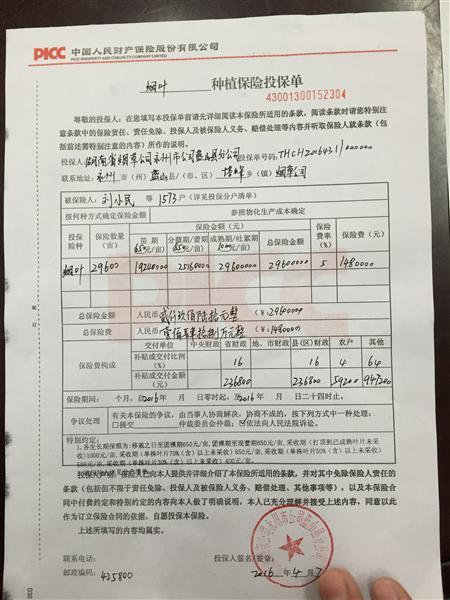 PICC 中国人民财产保险股份有限公司
PICC PROPERTY AND CASUALTY COMPANY LIMITED
烟叶 种植保险投保单
43001300152304
尊敬的投保人：在您填写本投保单前请先详细阅读本保险所适用的条款，阅读条款时请您特别注
意条款中的保险责任、责任免除、投保人及被保险人义务、赔偿处理等内容并听取保险人就条款（包
括前述需特别注意的内容）所作的说明。
投保人：湖南省烟草公司永州市公司蓝山县分公司 投保单号：
联系地址：永州 市（州）蓝山 县/（市、区）塔峰 乡（镇）烟草公司
被保险人：刘小民 等 1573 户（详见投保分户清单）
按何种方式确定保险金额 参照物化生产成本确定
投保险种 保险数量（亩） 保险金额（元） 保险费率(%) 保险费（元）
苗期（650元/亩） 分蘖期/蕾期（850元/亩） 成熟期/吐絮期（1000元/亩） 总保险金额
烟叶 29600 19240000 25160000 29600000 29600000 5 1480000
总保险金额 人民币：贰仟玖佰陆拾元整 （￥：29600000）
总保险费 人民币：壹佰肆拾捌万元整 （￥：1480000）
保险费构成 交付单位 中央财政 省财政 地、市财政 县(区)财政 农户 其他
补贴或交付比例(%) 16 16 4 64
补贴或交付金额(元) 236800 236800 59200 947200
保险期间： 个月，自2016年 月 日零时起，至2016年 月 日二十四时止。
争议处理 有关本保险的争议，由当事人协商解决，协商不成的，按下列方式中一种处理：
□提交 仲裁委员会仲裁；☑依法向人民法院诉讼。
特别约定：
1.各生长期保额为：移栽之日至团棵期650元/亩，团棵期至现蕾期850元/亩，采收期（打顶到已成熟叶片未采
收)1000元/亩，采收期（单株叶片70%（含）以上未采收）850元/亩，采收期（单株叶片50%（含）以上未采收）
600元/亩，采收期（单株叶片30%（含）以上未采收）400元/亩。
投保人声明：保险人已向本人提供并详细介绍了本保险所适用的条款，并对其中免除保险人责任的
条款（包括但不限于责任免除、投保人及被保险人义务、赔偿处理、其他事项等），以及本保险合
同中付费约定和特别约定的内容向本人做了明确说明，本人已充分理解并接受上述内容，同意以此
作为订立保险合同的依据，自愿投保本保险。
上述所填写的内容均属实。
联系电话： 投保人签名/签章：
邮政编码：425800 2016 年 4 月